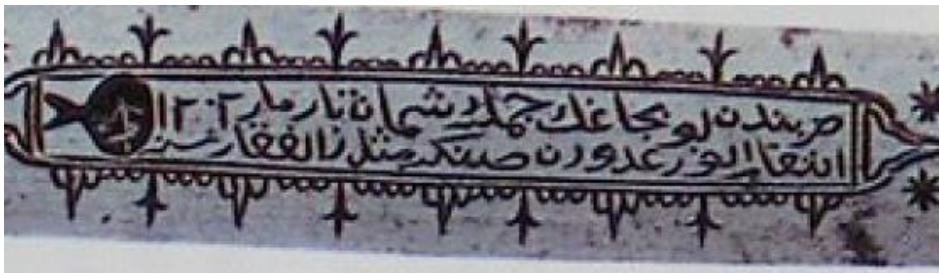 ضربندن بو بجاغك جمله دشمان تارمار ١٢٠٢
انتقام الور عدودن صنكه مثل ذالفقار سنه